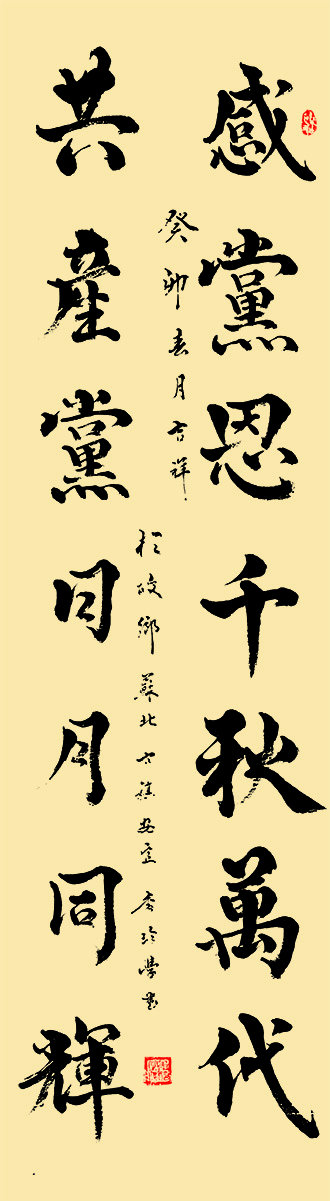 感黨恩千秋萬代
共產黨日月同輝
癸卯春月吉祥
於故鄉蘇北古鎮安宜